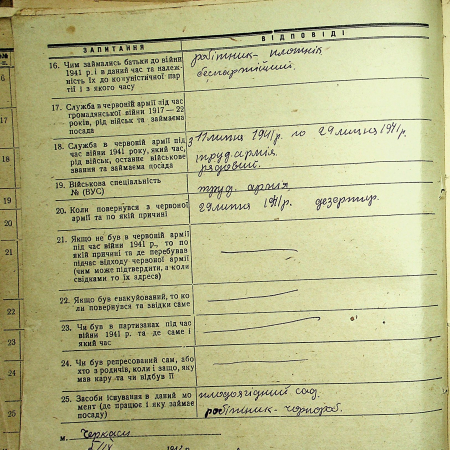 ЗАПИТАННЯ
ВІДПОВІДІ
16. Чим займались батьки до війни
1941 р. і в даний час та належ-
ність їх до комуністичної пар-
тії і з якого часу
робітник - плотнік
беспартійний.
17. Служба в червоній армії під час
громадянської війни 1917—22
років, рід військ та займаєма
посада
18. Служба в червоній армії під
час війни 1941 року, який час,
рід військ, останнє військове
звання та займаєма посада
з 11 липня 1941 р. по 29 липня 1941 р.
труд. армія.
рядовий.
19. Військова спеціальність
№ (ВУС)
труд. армія
20. Коли повернувся з червоної
армії та по якій причині
29 липня 1941 р. дезертир.
21. Якщо не був в червоній армії
під час війни 1941 р., то по
якій причині та де перебував
підчас відходу червоної армії
(чим може підтвердити, а коли
свідками то їх адреса)
22. Якщо був евакуйований, то ко-
ли повернувся та звідки саме
23. Чи був в партизанах під час
війни 1941 р. та де саме і
який час
24. Чи був репресований сам, або
хто з родичів, коли і защо, яку
мав кару та чи відбув її
25. Засоби існування в даний мо-
мент (де працює і яку займає
посаду)
плодоягідний сад.
робітник - чорнороб.
м. Черкаси
6
17
18
19
20
21
22
23
24
25